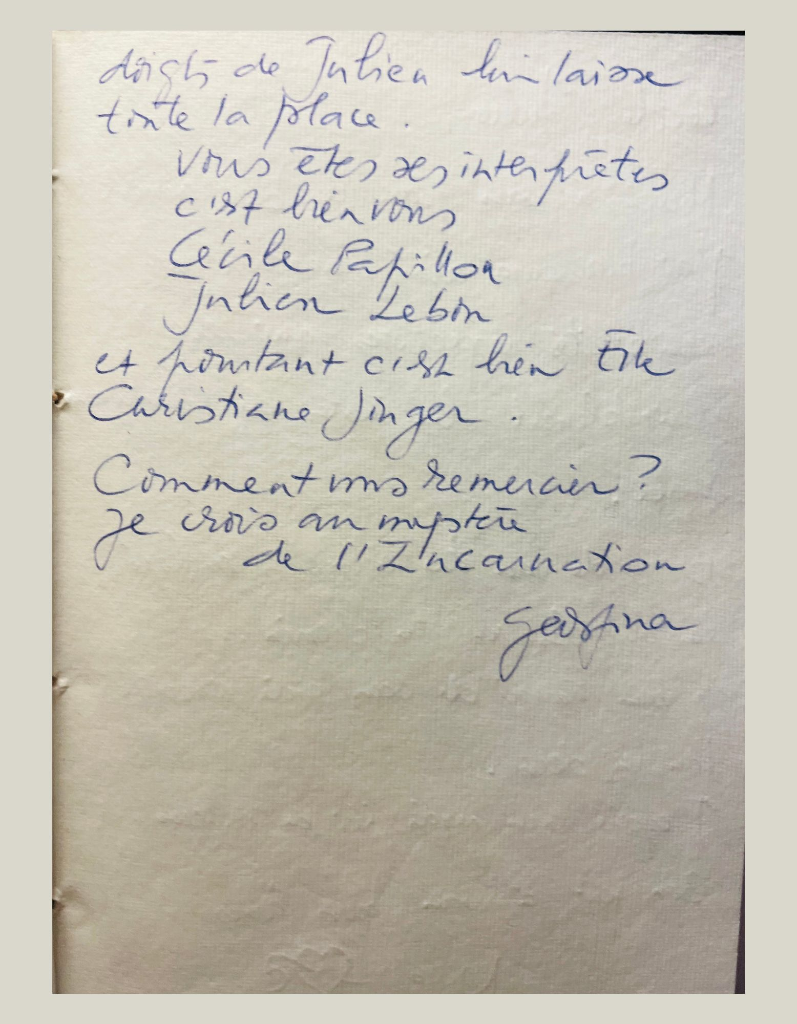 doigts de Julien lui laisse
toute la place.
vous êtes ses interprètes
c'est bien vous
Cécile Papillon
Julien Lebon
et pourtant c'est bien Elle
Christiane Jinger.
Comment vous remercier ?
Je crois au mystère
de l'Incarnation